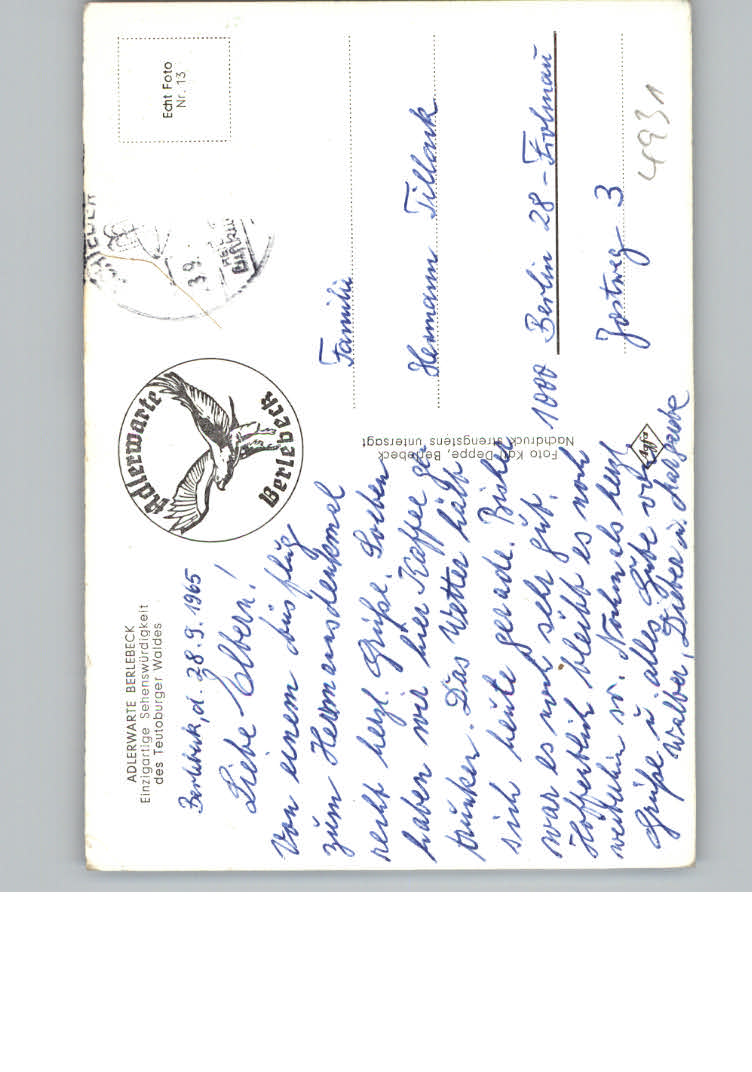 ADLERWARTE BERLEBECK
Einzigartige Sehenswürdigkeit
des Teutoburger Waldes
Adlerwarte
Berlebeck
Echt Foto
Nr. 13
Berlebeck, d. 28.9.1965
Liebe Eltern!
Von einem Ausflug
zum Hermannsdenkmal
recht herzl. Grüße. Soeben
haben wir hier Kaffee ge
trunken. Das Wetter hält
sich heute gerade. Bisher
war es noch sehr gut.
Hoffentlich bleibt es noch
weiterhin so. Nochmals herzl
Grüße u. alles Gute von
Walter, Dieter u.
Familie
Hermann Tillack
1000 Berlin 28 - Frohnau
Jostweg 3
4931
Foto Karl Deppe, Berlebeck
Nachdruck strengstens untersagt